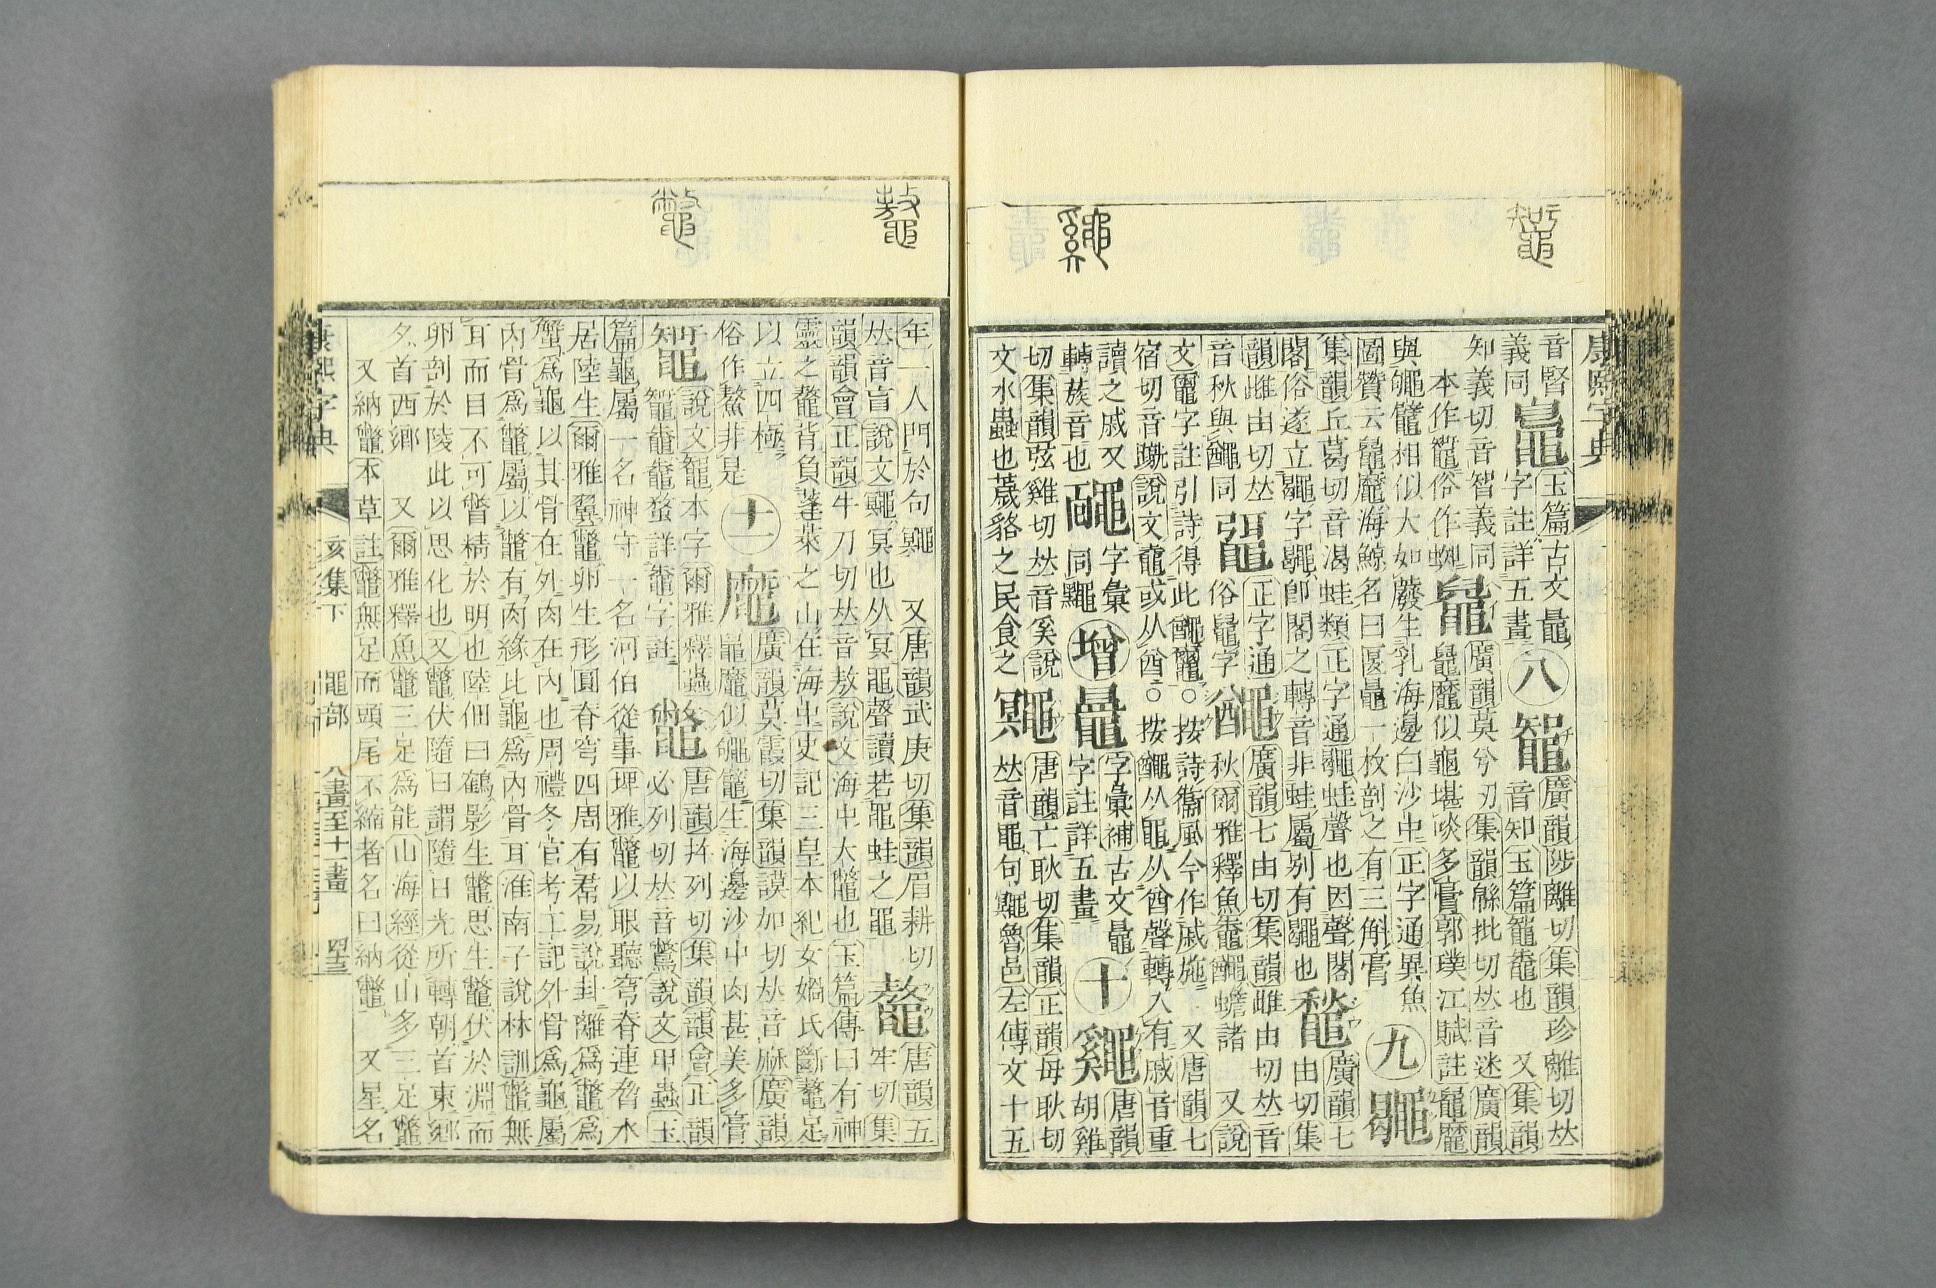 康熙字典
音賢
義同
鼂
玉篇古文鼂
字註詳五畫
八
鼅
廣韻陟離切集韻珍離切𠀤
音知玉篇鼅鼄也 又集韻
知義切音智義同
本作鼅俗作蜘
廣韻莫兮切集韻緜批切𠀤音迷廣韻
似龜堪啖多膏郭璞江賦註
相似大如 發生乳海邊白沙中正字通異魚
圖贊云 海鯨名曰匽鼂一枚剖之有三斛膏
九
集韻丘葛切音渴蛙類正字通 蛙聲也因聲閣
閣俗遂立 字 卽閣之轉音非蛙屬別有 也
廣韻七
由切集
韻雌由切𠀤
音秋與 同
正字通
俗 字
廣韻七由切集韻雌由切𠀤音
秋爾雅釋魚 蟾諸 又說
文 字註引詩得此 。按詩衞風今作戚施 又唐韻七
宿切音 說文 或从酋。按 从黽从酋聲轉入有戚音重
讀之戚又
轉蔟音也
字彙
同鼆
增
鼂
字彙補古文鼂
字註詳五畫
十
唐韻
胡雞
切集韻弦雞切𠀤音奚說
文水蟲也薉貉之民食之
鼆
唐韻亡耿切集韻正韻母耿切
𠀤音黽句鼆魯邑左傳文十五
年一人門於句鼆 又唐韻武庚切集韻眉耕切
𠀤音盲說文鼆冥也从冥黽聲讀若黽蛙之黽
鼇
唐韻五
牢切集
韻韻會正韻牛刀切𠀤音敖說文海中大鼈也玉篇傳曰有神
靈之鼇背負蓬萊之山在海中史記三皇本紀女媧氏斷鼇足
以立四極
俗作鰲非是
十一
廣韻莫霞切集韻謨加切𠀤音麻廣韻
似 生海邊沙中肉甚美多膏
說文鼅本字爾雅釋蟲
蝥詳鼄字註
鼈
唐韻幷列切集韻韻會正韻
必列切𠀤音鷩說文甲蟲玉
篇龜屬一名神守一名河伯從事埤雅鼈以眼聽穹脊連脅水
居陸生爾雅翼鼈卵生形圓脊穹四周有帬易說卦離爲鼈爲
蟹爲龜以其骨在外肉在內也周禮冬官考工記外骨爲龜屬
內骨爲鼈屬以鼈有肉緣比龜爲內骨耳淮南子說林訓鼈無
耳而目不可瞥精於明也陸佃曰鶴影生鼈思生鼈伏於淵而
卵剖於陵此以思化也又鼈伏隨日謂隨日光所轉朝首東鄕
夕首西鄕 又爾雅釋魚鼈三足爲能山海經從山多三足鼈
又納鼈本草註鼈無足而頭尾不縮者名曰納鼈 又星名
康熙字典
亥集下
黽部
八畫至十一畫